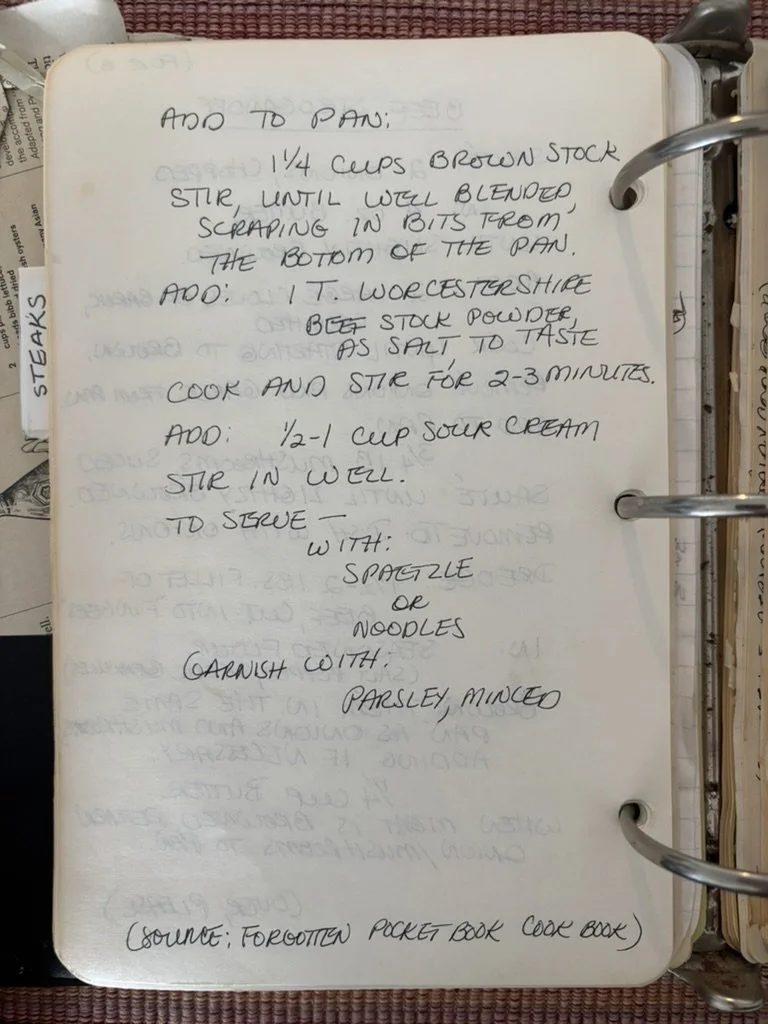 ADD TO PAN:
1 1/4 CUPS BROWN STOCK
STIR, UNTIL WELL BLENDED,
SCRAPING IN BITS FROM
THE BOTTOM OF THE PAN.
ADD: 1 T. WORCESTERSHIRE
BEEF STOCK POWDER,
AS SALT, TO TASTE
COOK AND STIR FOR 2-3 MINUTES.
ADD: 1/2-1 CUP SOUR CREAM
STIR IN WELL.
TO SERVE —
WITH:
SPAETZLE
OR
NOODLES
GARNISH WITH:
PARSLEY, MINCED
(SOURCE: FORGOTTEN POCKET BOOK COOK BOOK)
STEAKS